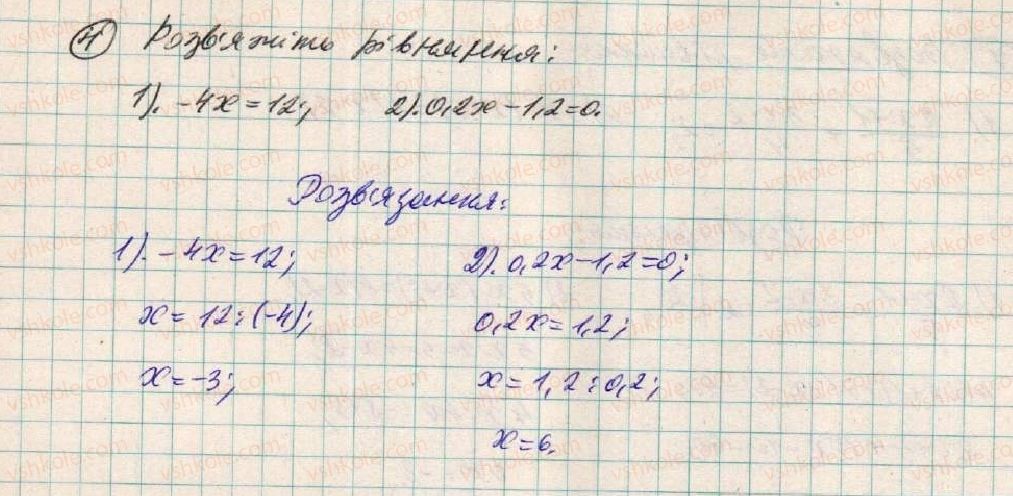 4 Розв'яжіть рівняння:
1). -4x = 12; 2). 0,2x - 1,2 = 0.
Розв'язання:
1). -4x = 12; 2). 0,2x - 1,2 = 0;
x = 12 : (-4); 0,2x = 1,2;
x = -3; x = 1,2 : 0,2;
x = 6.